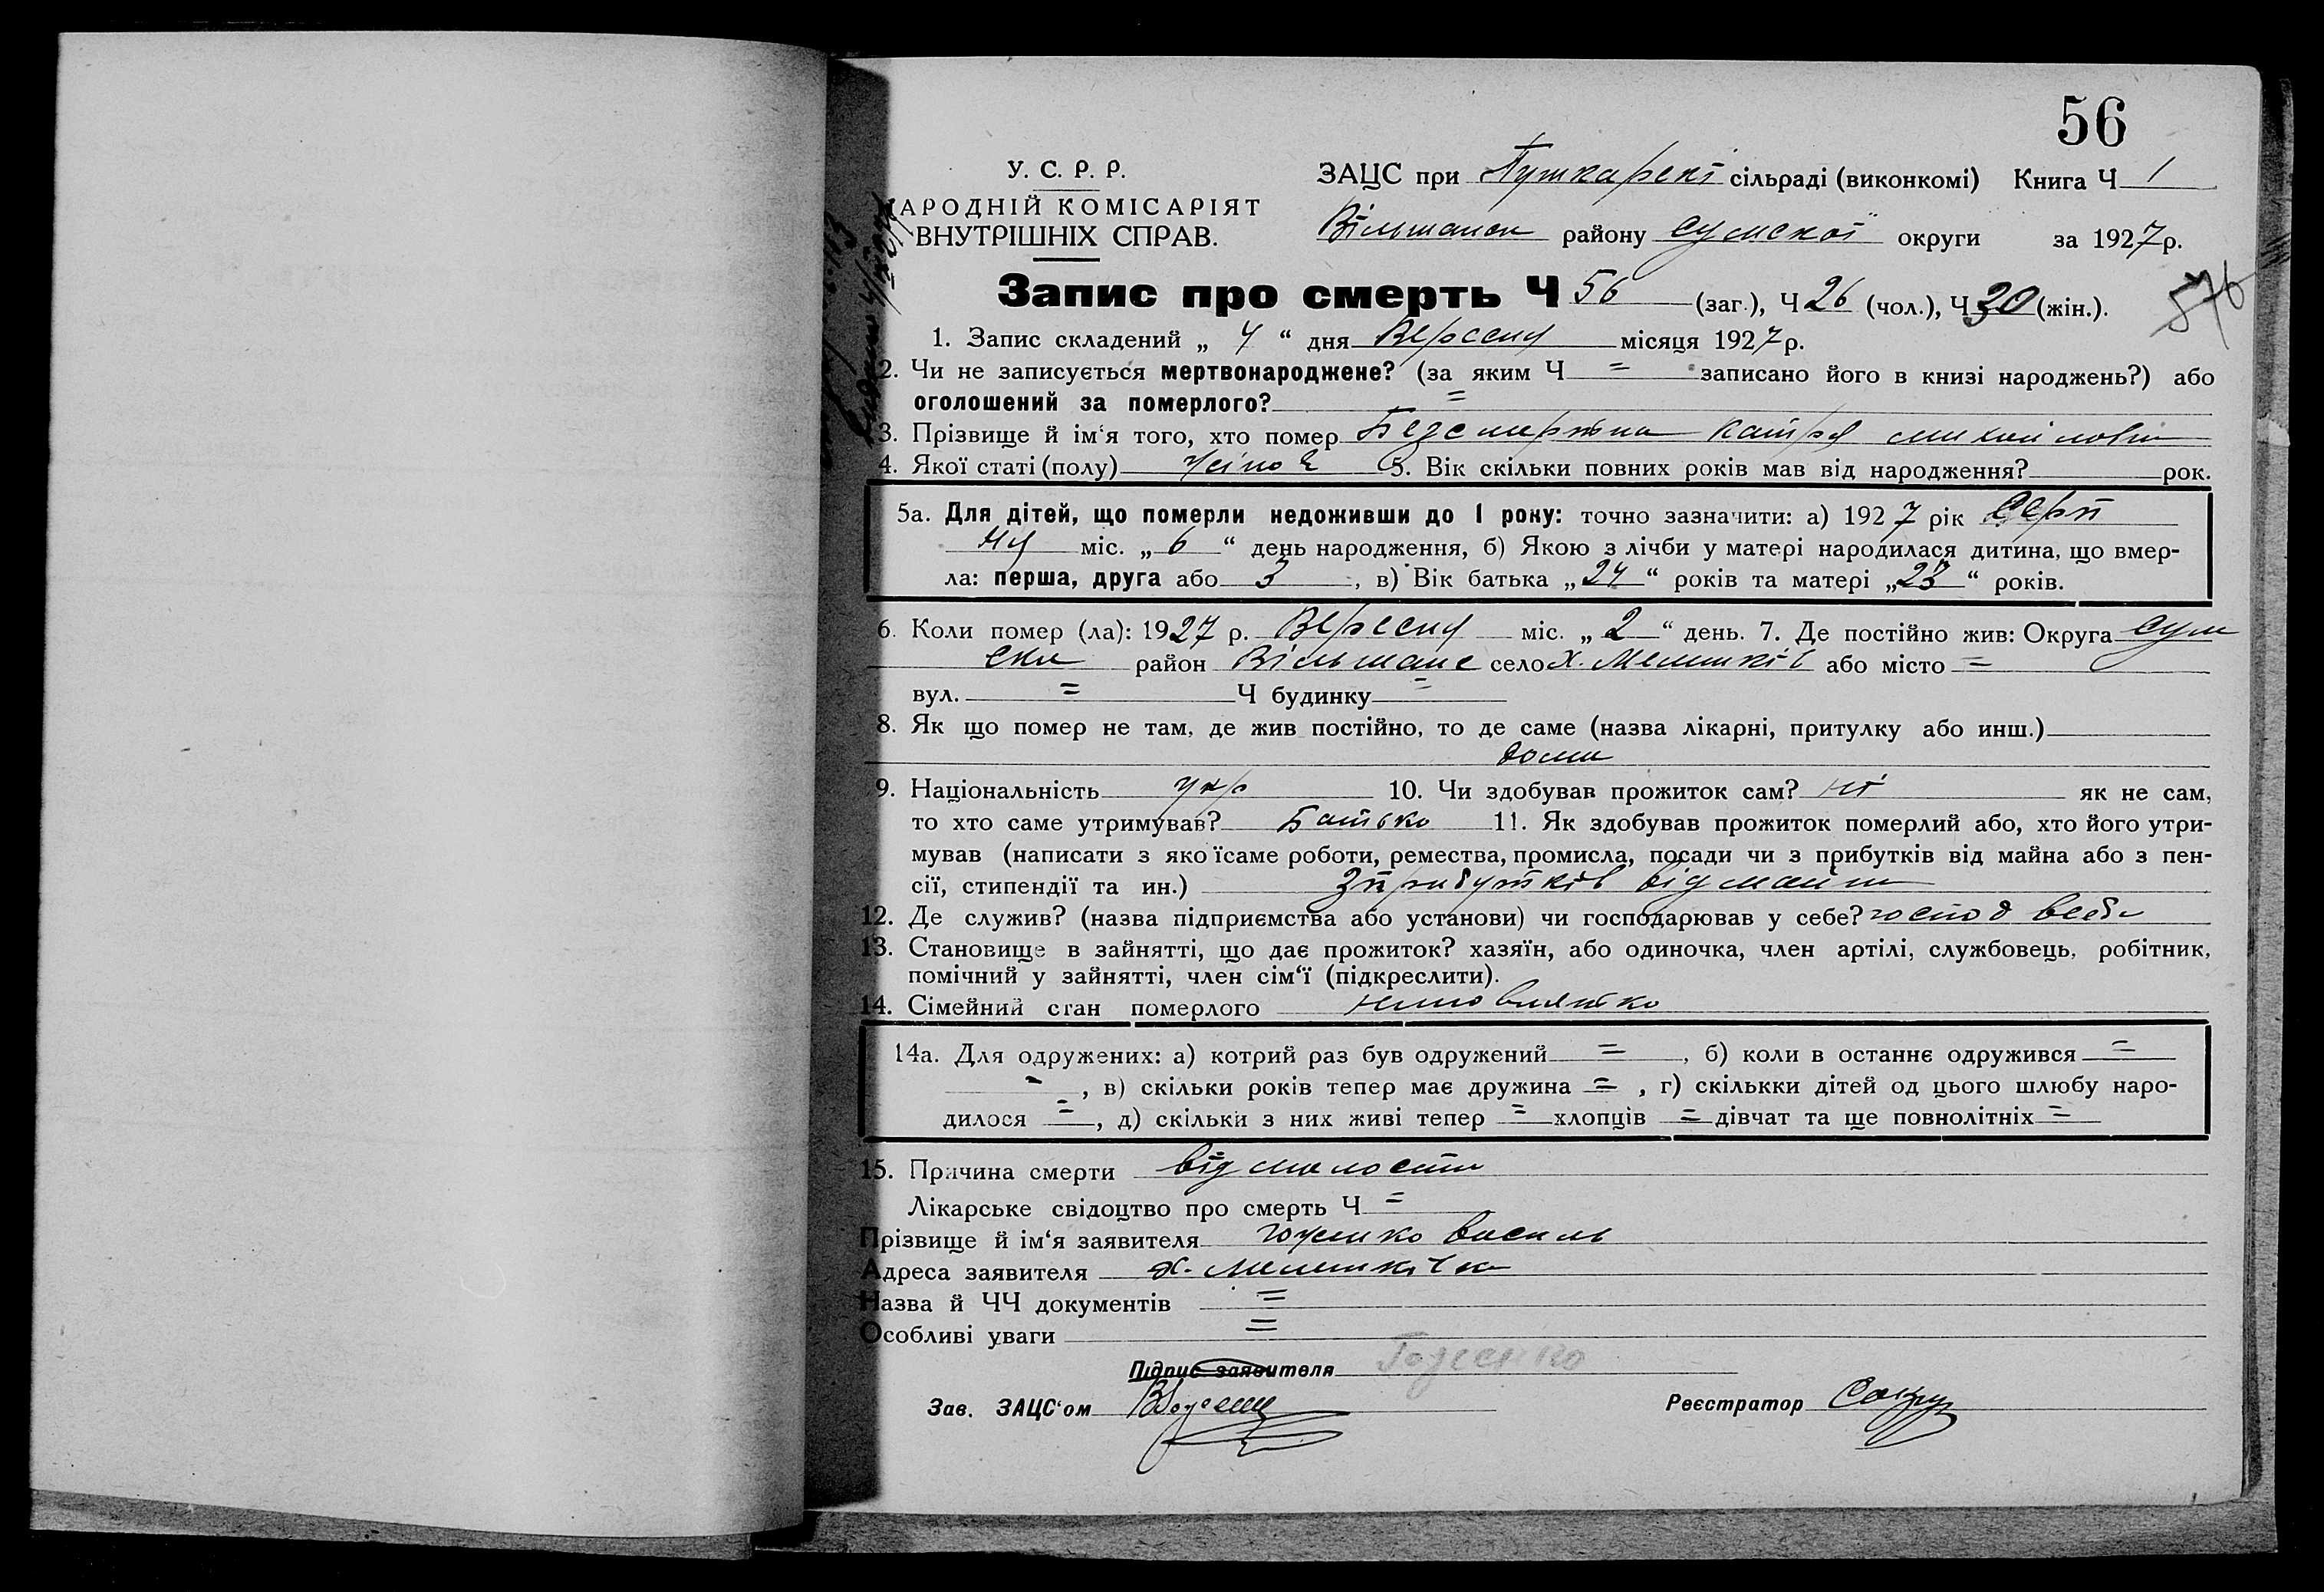 56
У. С. Р. Р.
НАРОДНІЙ КОМІСАРІЯТ
ВНУТРІШНІХ СПРАВ.
ЗАЦС при Пушкарскі сільраді (виконкомі) Книга Ч 1
Вільшанск району Сумскої округи за 1927 р.
Запис про смерть Ч 56 (заг.), Ч 26 (чол.), Ч 30 (жін.).
576
1. Запис складений „ 4 “ дня Вересня місяця 1927 р.
2. Чи не записується мертвонароджене? (за яким Ч = записано його в книзі народжень?) або
оголошений за померлого? =
3. Прізвище й ім‘я того, хто помер Безсмертна Катря Михайловна
4. Якої статі (полу) жіноч 5. Вік скільки повних років мав від народження? рок.
5а. Для дітей, що померли недоживши до 1 року: точно зазначити: а) 1927 рік Серп
ня міс. „ 6 “ день народження, б) Якою з лічби у матері народилася дитина, що вмер-
ла: перша, друга або 3, в) Вік батька „ 24 “ років та матері „ 23 “ років.
6. Коли помер (ла): 1927 р. Вересня міс. „ 2 “ день. 7. Де постійно жив: Округа Сум
ска район Вільшанс село х. Мелешків або місто =
вул. = Ч будинку =
8. Як що помер не там, де жив постійно, то де саме (назва лікарні, притулку або инш.)
дома
9. Національність укр 10. Чи здобував прожиток сам? ні як не сам,
то хто саме утримував? Батько 11. Як здобував прожиток померлий або, хто його утри-
мував (написати з якоїсаме роботи, ремества, промисла, посади чи з прибутків від майна або з пен-
сії, стипендії та ин.) З прибутків від майна
12. Де служив? (назва підприємства або установи) чи господарював у себе? господ в себе
13. Становище в зайнятті, що дає прожиток? хазяїн, або одиночка, член артілі, службовець, робітник,
помічний у зайнятті, член сім‘ї (підкреслити).
14. Сімейний стан померлого немовлятко
14а. Для одружених: а) котрий раз був одружений =, б) коли в останнє одружився =
-, в) скільки років тепер має дружина =, г) скількки дітей од цього шлюбу наро-
дилося =, д) скільки з них живі тепер = хлопців = дівчат та ще повнолітніх =
15. Причина смерти від малости
Лікарське свідоцтво про смерть Ч =
Прізвище й ім‘я заявителя Василь
Адреса заявителя х. Мелешківка
Назва й ЧЧ документів =
Особливі уваги =
Підпис заявителя
Зав. ЗАЦС‘ом
Реєстратор